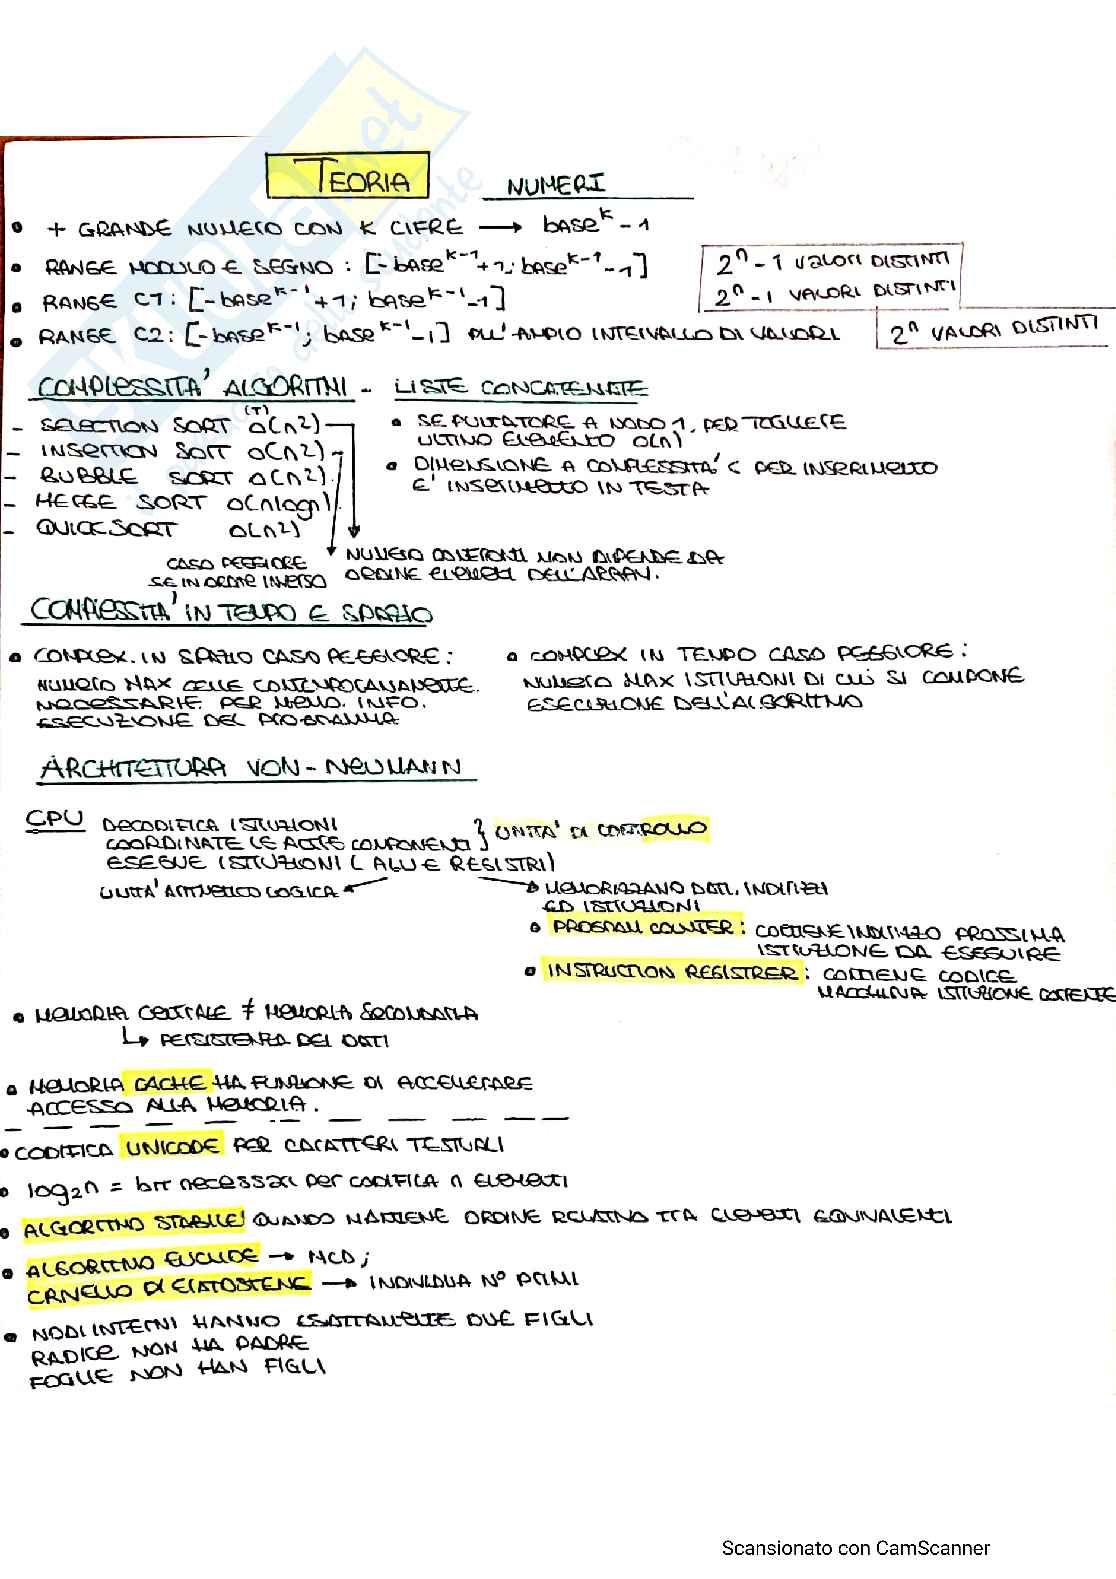 TEORIA
NUMERI
+ GRANDE NUMERO CON K CIFRE → base^k - 1
RANGE MODULO E SEGNO : [-base^k-1 +1; base^k-1 -1]
2^n - 1 VALORI DISTINTI
RANGE C1 : [-base^k-1 +1; base^k-1 -1]
2^n - 1 VALORI DISTINTI
RANGE C2: [-base^k-1; base^k-1 -1] PIU' AMPIO INTERVALLO DI VALORI
2^n VALORI DISTINTI
COMPLESSITA' ALGORITMI - LISTE CONCATENATE
- SELECTION SORT (T) O(n2)
- INSERTION SORT O(n2)
- BUBBLE SORT O(n2)
- MERGE SORT O(nlogn)
- QUICKSORT O(n2)
CASO PEGGIORE
SE IN ORDINE INVERSO
NUMERO CONFRONTI NON DIPENDE DA
ORDINE ELEMENTI DELL'ARRAY.
SE PUNTATORE A NODO 1, PER TOGLIERE
ULTIMO ELEMENTO O(n)
DIMENSIONE A COMPLESSITA' < PER INSERIMENTO
E' INSERIMENTO IN TESTA
COMPLESSITA' IN TEMPO E SPAZIO
COMPLEX. IN SPAZIO CASO PEGGIORE :
NUMERO MAX CELLE CONTEMPORANAMENTE
NECESSARIE PER MEMO. INFO.
ESECUZIONE DEL PROGRAMMA
COMPLEX IN TEMPO CASO PEGGIORE :
NUMERO MAX ISTRUZIONI DI CUI SI COMPONE
ESECUZIONE DELL'ALGORITMO
ARCHITETTURA VON-NEUMANN
CPU DECODIFICA ISTRUZIONI
COORDINATE LE ALTRE COMPONENTI } UNITA' DI CONTROLLO
ESEGUE ISTRUZIONI ( ALU E REGISTRI)
UNITA' ARITMETICO LOGICA
MEMORIZZANO DATI, INDIRIZZI
ED ISTRUZIONI
PROGRAM COUNTER : CONTIENE INDIRIZZO PROSSIMA
ISTRUZIONE DA ESEGUIRE
INSTRUCTION REGISTRER : CONTIENE CODICE
MACCHINA ISTRUZIONE CORRENTE
MEMORIA CENTRALE ≠ MEMORIA SECONDARIA
↳ PERSISTENZA DEI DATI
MEMORIA CACHE HA FUNZIONE DI ACCELLERARE
ACCESSO ALLA MEMORIA.
CODIFICA UNICODE PER CARATTERI TESTUALI
log2n = bit necessari per codifica n elementi
ALGORITMO STABILE: QUANDO MANTIENE ORDINE RELATIVO TRA ELEMENTI EQUIVALENTI
ALGORITMO EUCLIDE → MCD ;
CRIVELLO DI ERATOSTENE → INDIVIDUA N° PRIMI
NODI INTERNI HANNO ESATTAMENTE DUE FIGLI
RADICE NON HA PADRE
FOGLIE NON HAN FIGLI
Scansionato con CamScanner